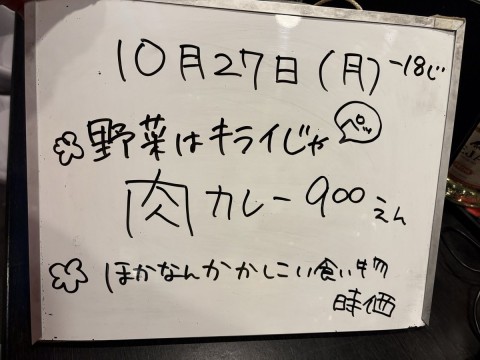 10月27日(月)-18じ
野菜はキライじゃ
ペッ
肉カレー900えん
ほかなんかかしこい食い物
時価